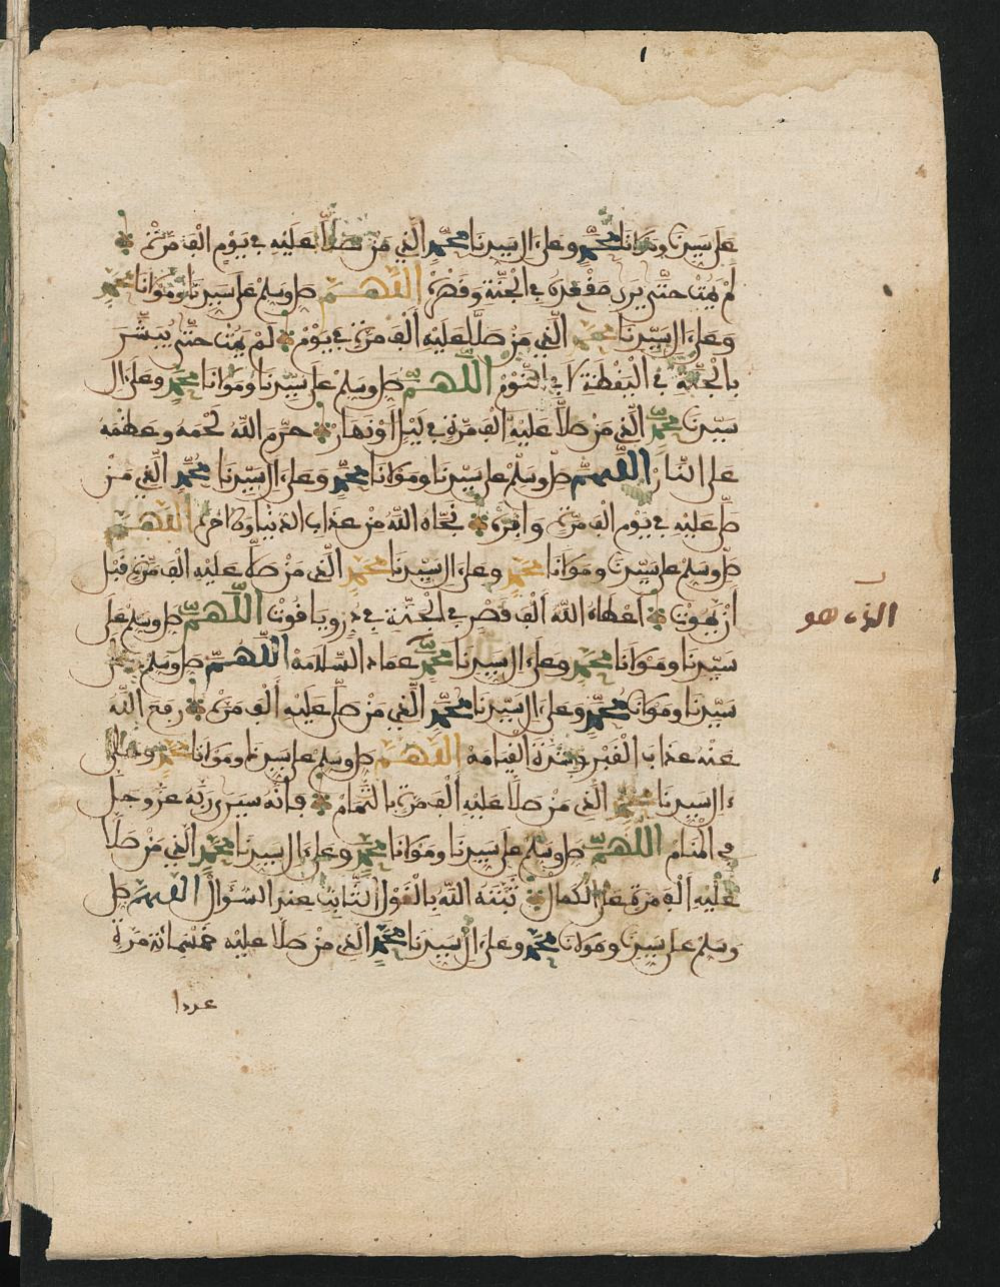 على سيدنا ومولانا محمد وعلى ءال سيدنا محمد الذي من صلا عليه في يوم الف مرة
لم يمت حتى يرى مقعده في الجنة وقصره اللهم صل وسلم على سيدنا ومولانا محمد
وعلى ءال سيدنا محمد الذي من صلا عليه ألف مرة في يوم لم يمت حتى يبشر
بالجنة في اليقظة لا في النوم اللهم صل وسلم على سيدنا ومولانا محمد وعلى ءال
سيدنا محمد الذي من صلا عليه الف مرة في ليل أو نهار حرم الله لحمه وعظمه
على النار اللهم صل وسلم على سيدنا ومولانا محمد وعلى ءال سيدنا محمد الذي من
صل عليه في يوم الف مرة وافرة نجاه الله من عذاب الدنيا والاخرة اللهم
صل وسلم على سيدنا ومولانا محمد وعلى ءال سيدنا محمد الذي من صلا عليه الف مرة قبل
ان يموت اعطاه الله ألف قصر في الجنة في در وياقوت اللهم صل وسلم على
سيدنا ومولانا محمد وعلى ءال سيدنا محمد عماد السلامة اللهم صل وسلم على
سيدنا ومولانا محمد وعلى ءال سيدنا محمد الذي من صل عليه ألف مرة رفع الله
عنه عذاب القبر وشدة القيامة اللهم صل وسلم على سيدنا ومولانا محمد وعلى
ءال سيدنا محمد الذي من صلا عليه ألف مرة بالتمام فإنه سيرى ربه عز وجل
في المنام اللهم صل وسلم على سيدنا ومولانا محمد وعلى ءال سيدنا محمد الذي من صلا
عليه ألف مرة على الكمال ثبته الله بالقول الثابت عند السؤال اللهم صل
وسلم على سيدنا ومولانا محمد وعلى ءال سيدنا محمد الذي من صلا عليه خمسمائة مرة
عددا
الذي هو